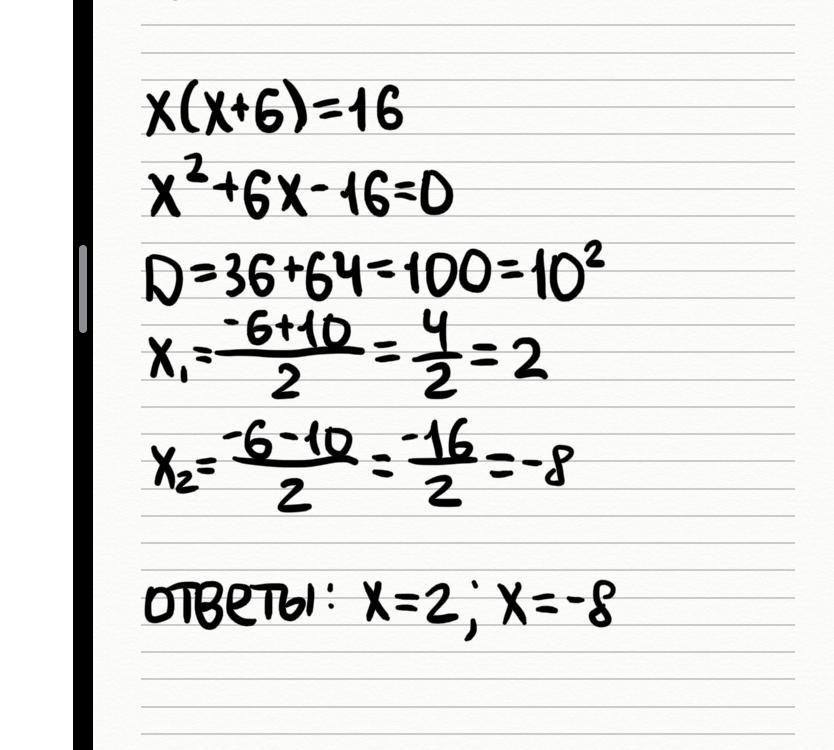 x(x+6)=16
x²+6x-16=0
D=36+64=100=10²
x₁=(-6+10)/2=4/2=2
x₂=(-6-10)/2=-16/2=-8
ответы: x=2; x=-8